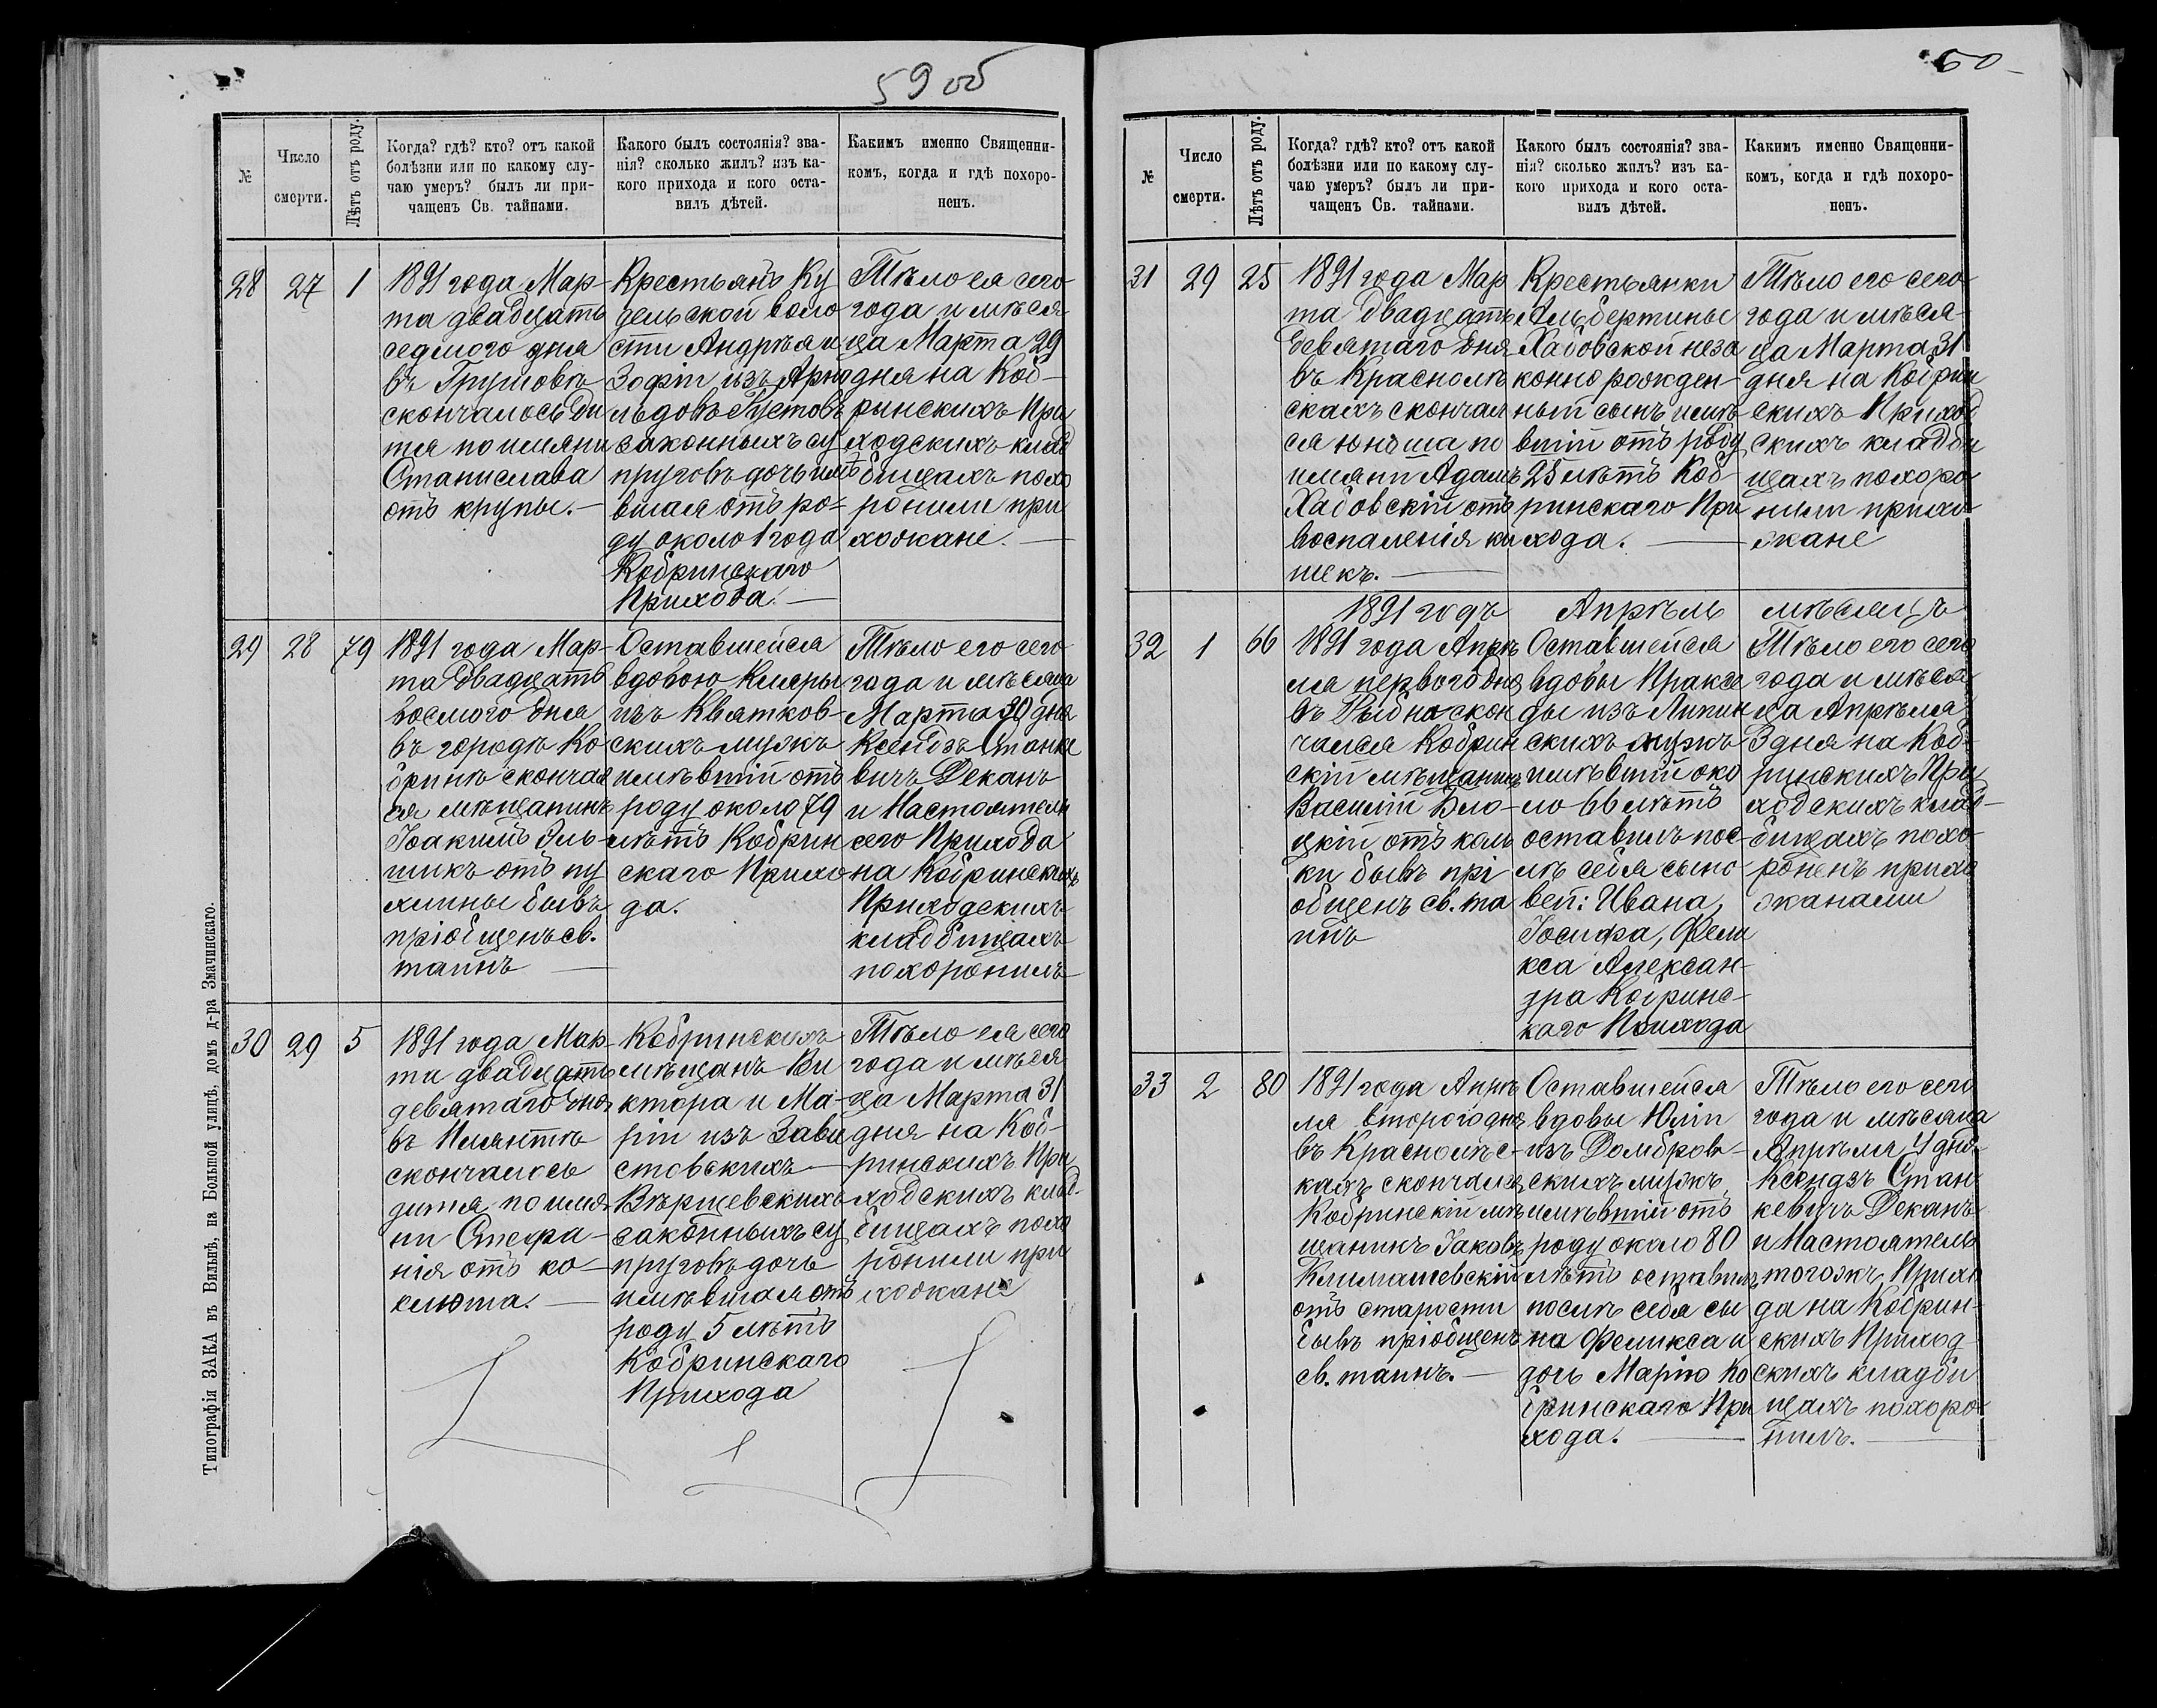 59 об
№
Число
смерти.
Лѣтъ отъ роду.
Когда? гдѣ? кто? отъ какой
болѣзни или по какому слу-
чаю умеръ? былъ ли при-
чащенъ Св. тайнами.
Какого былъ состоянія? зва-
нія? сколько жилъ? изъ ка-
кого прихода и кого оста-
вилъ дѣтей.
Какимъ именно Священни-
комъ, когда и гдѣ похоро-
ненъ.
28
27
1
1891 года Мар-
та двадцать
седмого дня
въ Грушовкѣ
скончалось ди
тя по имяни
Станислава
отъ крупы.
Крестьянъ
дельской воло
сти Андрѣя и
Зофіи изъ Арно
льдовъ
законныхъ су
пруговъ дочь имѣ
вшая отъ ро-
ду около 1 года
Кобринскаго
Прихода.
Тѣло ея сего
года и мѣся
ца Марта 29
дня на Коб-
ринскихъ При
ходскихъ клад
бищахъ похо
ронили при
хожане.
29
28
79
1891 года Мар-
та двадцать
восмого дня
въ городѣ Ко
бринѣ скончал
ся мѣщанинъ
Іоакимъ Эль-
шикъ отъ пу
хлины бывъ
пріобщенъ св.
таинъ
Оставшейся
вдовою Клары
изъ Квятков-
скихъ мужъ
имѣвшій отъ
роду около 79
лѣтъ Кобрин
скаго Прихо
да.
Тѣло его сего
года и мѣсяца
Марта 30 дня
Ксендзъ Станке
вичъ Деканъ
и Настоятель
сего Прихода
на Кобринскихъ
Приходскихъ
кладбищахъ
похоронилъ
30
29
5
1891 года Мар-
та двадцать
девятаго дня
въ Имянткѣ
скончалось
дитя по имя
ни Стефа-
нія отъ ко-
клюта.
Кобринскихъ
мѣщанъ Ви
ктора и Ма-
ріи изъ Зави
стовскихъ
Вѣршевскихъ
законныхъ су
пруговъ дочь
имѣвшая отъ
роду 5 лѣтъ
Кобринскаго
Прихода
Тѣло ея сего
года и мѣся
ца Марта 31
дня на Коб-
ринскихъ При
ходскихъ клад-
бищахъ похо
ронили при
хожане
Типографія ЗАКА въ Вильнѣ, на Большой улицѣ, домъ д-ра Змачинскаго.
60
№
Число
смерти.
Лѣтъ отъ роду.
Когда? гдѣ? кто? отъ какой
болѣзни или по какому слу-
чаю умеръ? былъ ли при-
чащенъ Св. тайнами.
Какого былъ состоянія? зва-
нія? сколько жилъ? изъ ка-
кого прихода и кого оста-
вилъ дѣтей.
Какимъ именно Священни-
комъ, когда и гдѣ похоро-
ненъ.
31
29
25
1891 года Мар
та двадцать
девятаго дня
въ Краснолѣ
скахъ скончал
ся юноша по
имяни Адамъ
Хадовскій отъ
воспаленія ки
шекъ.
Крестьянки
Альбертины
Хадовской неза
конно рожден-
ный сынъ имѣ
вшій отъ роду
25 лѣтъ Коб
ринскаго При
хода.
Тѣло его сего
года и мѣся-
ца Марта 31
дня на Кобрин
скихъ Приход
скихъ кладби
щахъ похоро
нили прихо
жане
1891 годъ Апрѣль мѣсяцъ
32
1
66
1891 года Апрѣ
ля первого дня
въ Рыбна скон
чался Кобрин
скій мѣщанинъ
Василій Бло-
цкій отъ коль
ки бывъ прі
общенъ св. та
инъ
Оставшейся
вдовы Праксе
ды изъ Липин
скихъ мужъ
имѣвшій око
ло 66 лѣтъ
оставилъ пос-
лѣ себя сыно
вей: Ивана,
Іосифа, Фели
кса Алексан-
дра Кобринс-
каго Прихода
Тѣло его сего
года и мѣся
ца Апрѣля
3 дня на Коб-
ринскихъ При
ходскихъ клад-
бищахъ похо-
роненъ прихо
жанами
33
2
80
1891 года Апрѣ
ля второго дня
въ Краснолѣс-
кахъ скончался
Кобринскій мѣ
щанинъ Іаковъ
Климашевскій
отъ старости
бывъ пріобщенъ
св. таинъ.
Оставшейся
вдовы Юліи
изъ Домбров-
скихъ мужъ
имѣвшій отъ
роду около 80
лѣтъ оставилъ
послѣ себя сы
на Феликса и
дочь Марію Ко
бринскаго При
хода.
Тѣло его сего
года и мѣсяца
Апрѣля 4 дня
Ксендзъ Стан
кевичъ Деканъ
и Настоятель
тогожъ Прихо
да на Кобрин-
скихъ Приход
скихъ кладби
щахъ похоро-
нилъ.